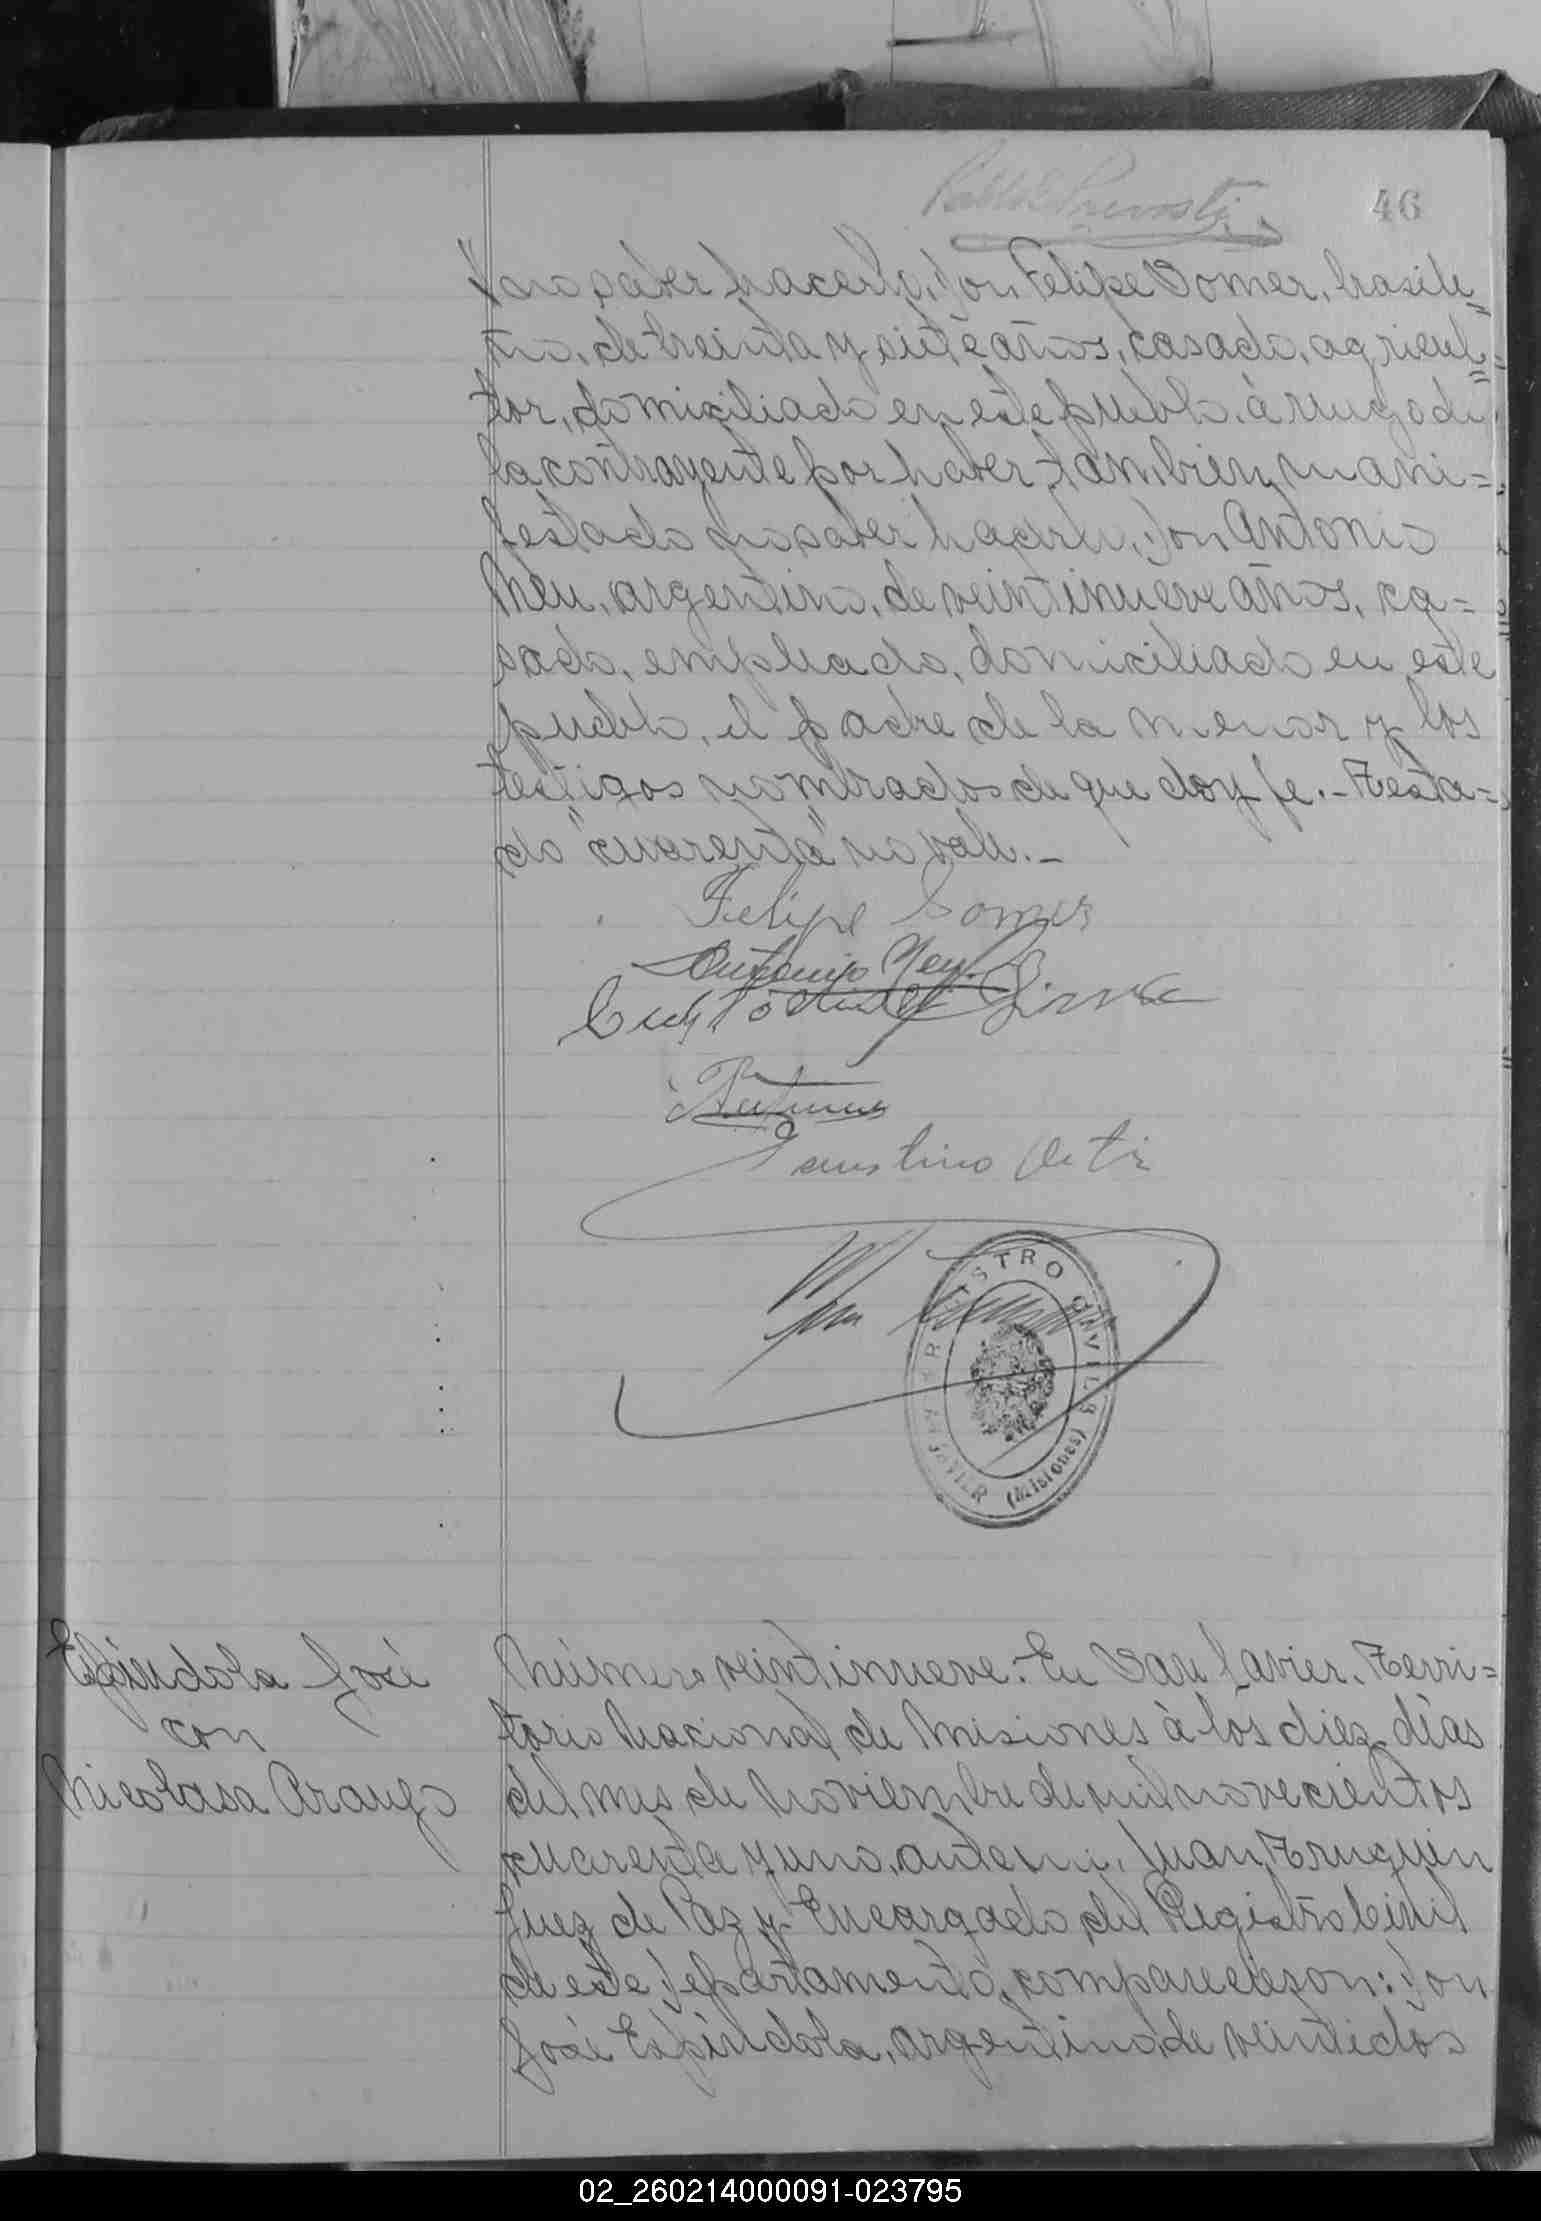 46
no saber hacerlo, Don Felipe Somer, brasile=
ño, de treinta y siete años, casado, agricul=
tor, domiciliado en este pueblo, á ruego de
la contrayente por haber tambien mani=
festado no saber hacerlo, Don Antonio
Neu, argentino, de veintinueve años, ca=
sado, empleado, domiciliado en este
pueblo, el padre de la menor y los
testigos nombrados de que doy fe.- Testa=
do "cuarenta" no vale.-
Felipe Somer
Antonio Neu
Faustino
REGISTRO CIVIL
JAVIER (Misiones)
Espíndola José
con
Nicolasa Araujo
Número veintinueve: En San Javier, Terri=
torio Nacional de Misiones á los diez días
del mes de Noviembre de mil novecientos
cuarenta y uno, ante mi, Juan Truquin
Juez de Paz y Encargado del Registro Civil
de este Departamento, comparecieron: Don
José Espíndola, argentino, de veintidós
02_260214000091-023795